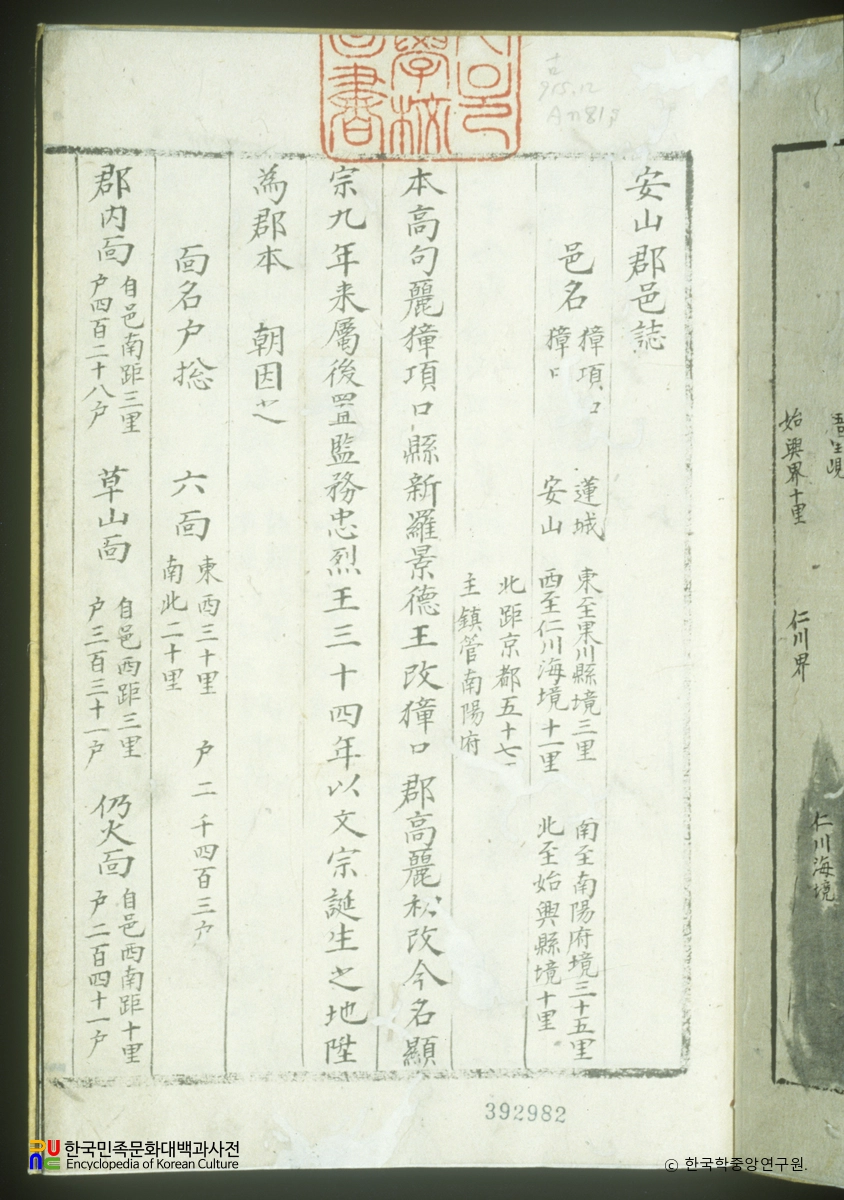 安山郡邑誌
邑名 獐項口 蓮城 東至果川縣境三里 南至南陽府境三十五里
獐口 安山 西至仁川海境十一里 北至始興縣境十里
北距京都五十七
主鎮管南陽府
本高句麗獐項口縣新羅景德王改獐口郡高麗初改今名顯
宗九年来屬後置監務忠烈王三十四年以文宗誕生之地陞
為郡本 朝因之
面名户捴 六面 東西三十里 户二千四百三户
南北二十里
郡内面 自邑南距三里 草山面 自邑西距三里 仍火面 自邑西南距十里
户四百二十八户 户三百三十一户 户二百四十一户
學校
書
古
915.12
392982
始興界十里
仁川界
仁川海境
한국민족문화대백과사전
Encyclopedia of Korean Culture
© 한국학중앙연구원.